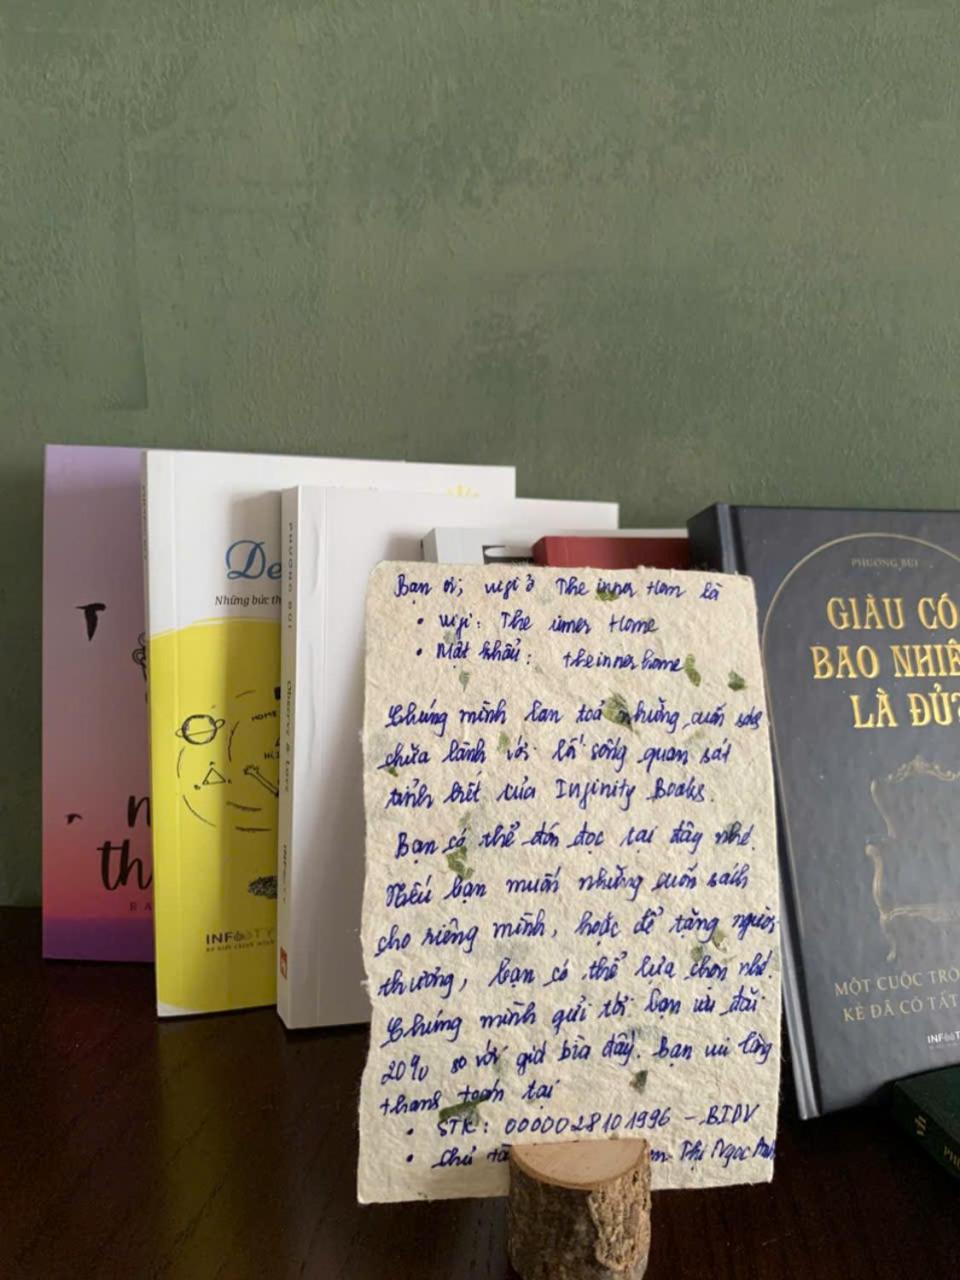 Bạn ơi, wifi ở The inner Hom là
• wifi: The inner Home
• Mật khẩu: theinnerhome
Chúng mình lan toả những cuốn sách
chữa lành với lối sống quan sát
tỉnh biết của Infinity Books.
Bạn có thể đón đọc tại đây nhé.
Nếu bạn muốn những cuốn sách
cho riêng mình, hoặc để tặng người
thương, bạn có thể lựa chọn nhé.
Chúng mình gửi tới bạn ưu đãi
20% so với giá bìa đấy. Bạn vui lòng
thanh toán tại
• STK: 0000028101996 - BIDV
• Chủ tà
m Thị Ngọc Anh
De
Những bức th
HOME
INFOOTY
PHƯƠNG BÙI
Observe & Love
th
RA
PHƯƠNG BÙI
GIÀU CÓ
BAO NHIÊ
LÀ ĐỦ?
MỘT CUỘC TRÒ
KẺ ĐÃ CÓ TẤT